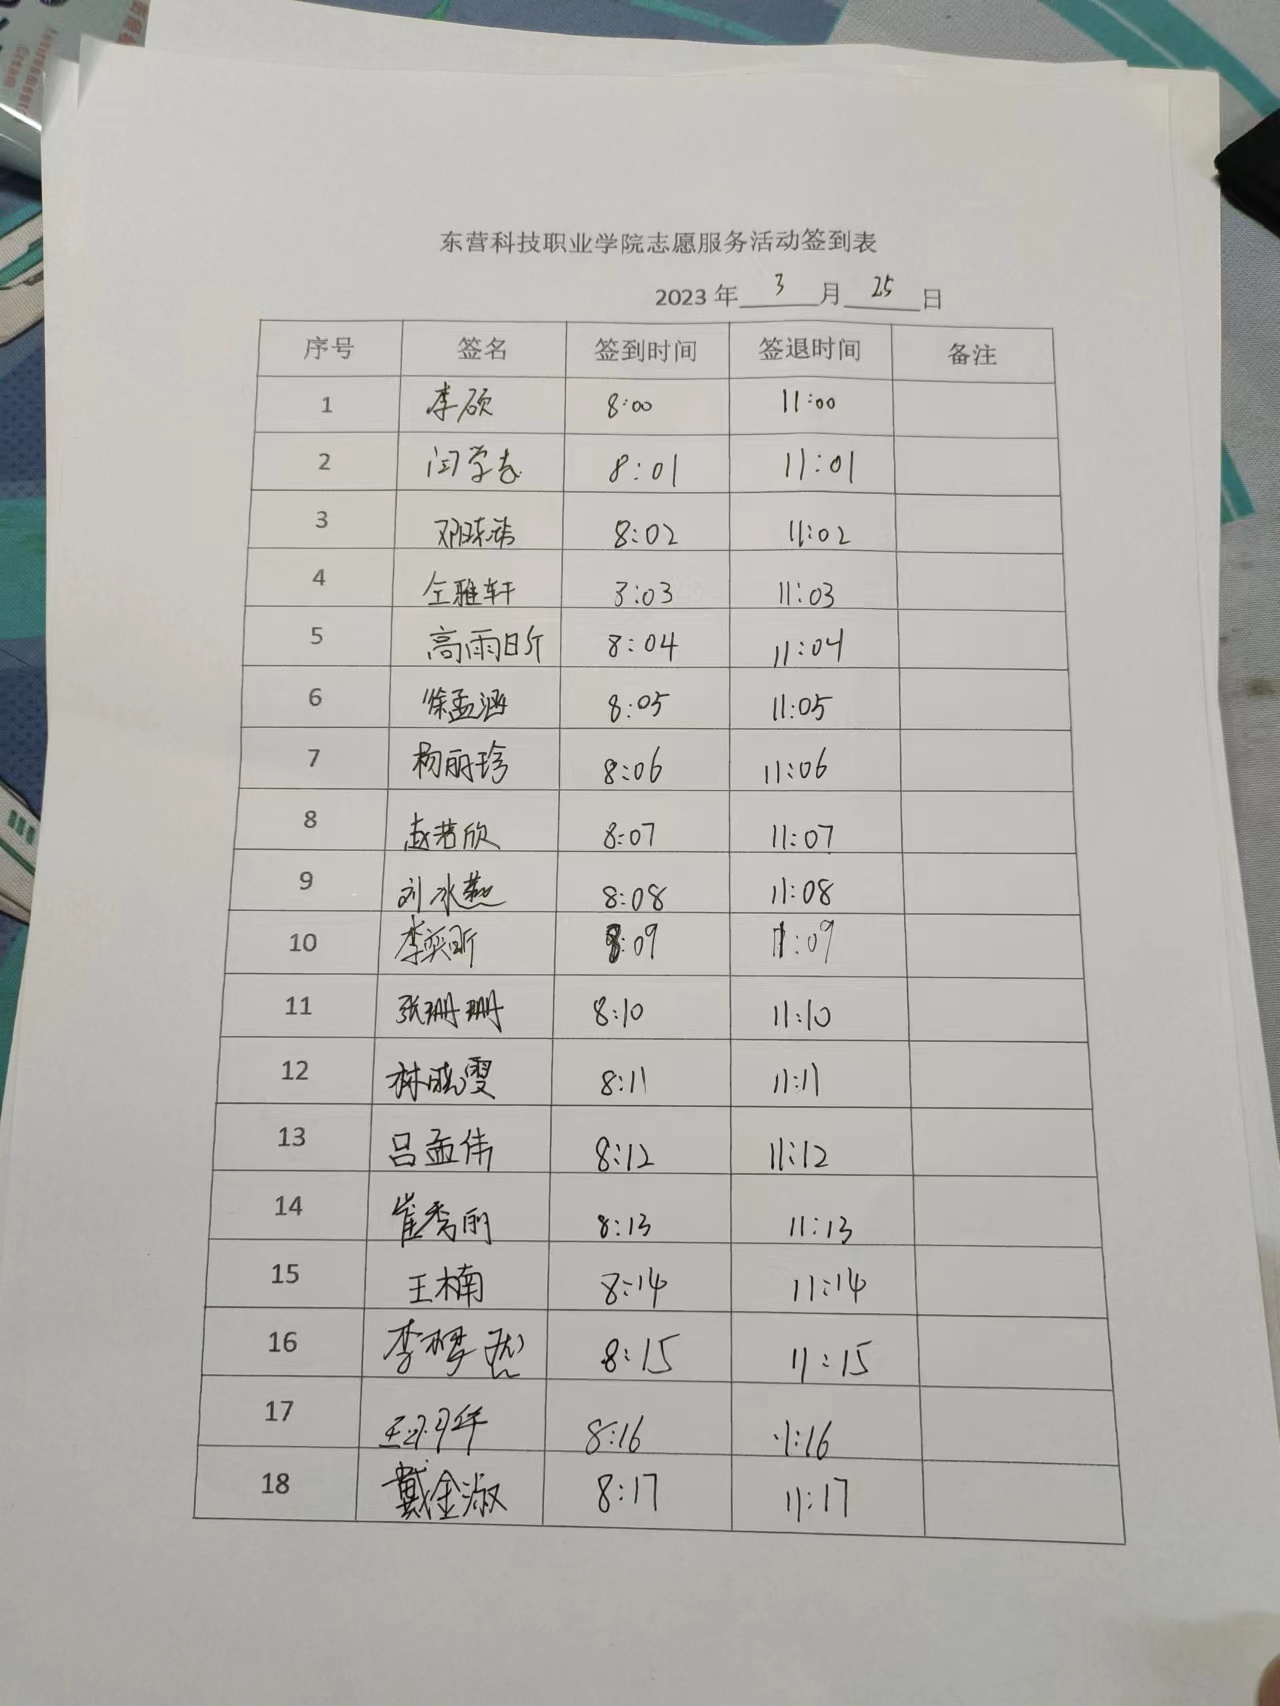 东营科技职业学院志愿服务活动签到表
2023 年 3 月 25 日
序号 签名 签到时间 签退时间 备注
1 李硕 8:00 11:00
2 闫学志 8:01 11:01
3 8:02 11:02
4 仝雅轩 3:03 11:03
5 高雨昕 8:04 11:04
6 徐孟涵 8:05 11:05
7 杨丽珍 8:06 11:06
8 赵若欣 8:07 11:07
9 刘冰燕 8:08 11:08
10 李奕昕 8:09 11:09
11 张珊珊 8:10 11:10
12 林晓雯 8:11 11:11
13 吕孟伟 8:12 11:12
14 崔秀丽 8:13 11:13
15 王楠 8:14 11:14
16 李梦 8:15 11:15
17 8:16 11:16
18 戴金淑 8:17 11:17